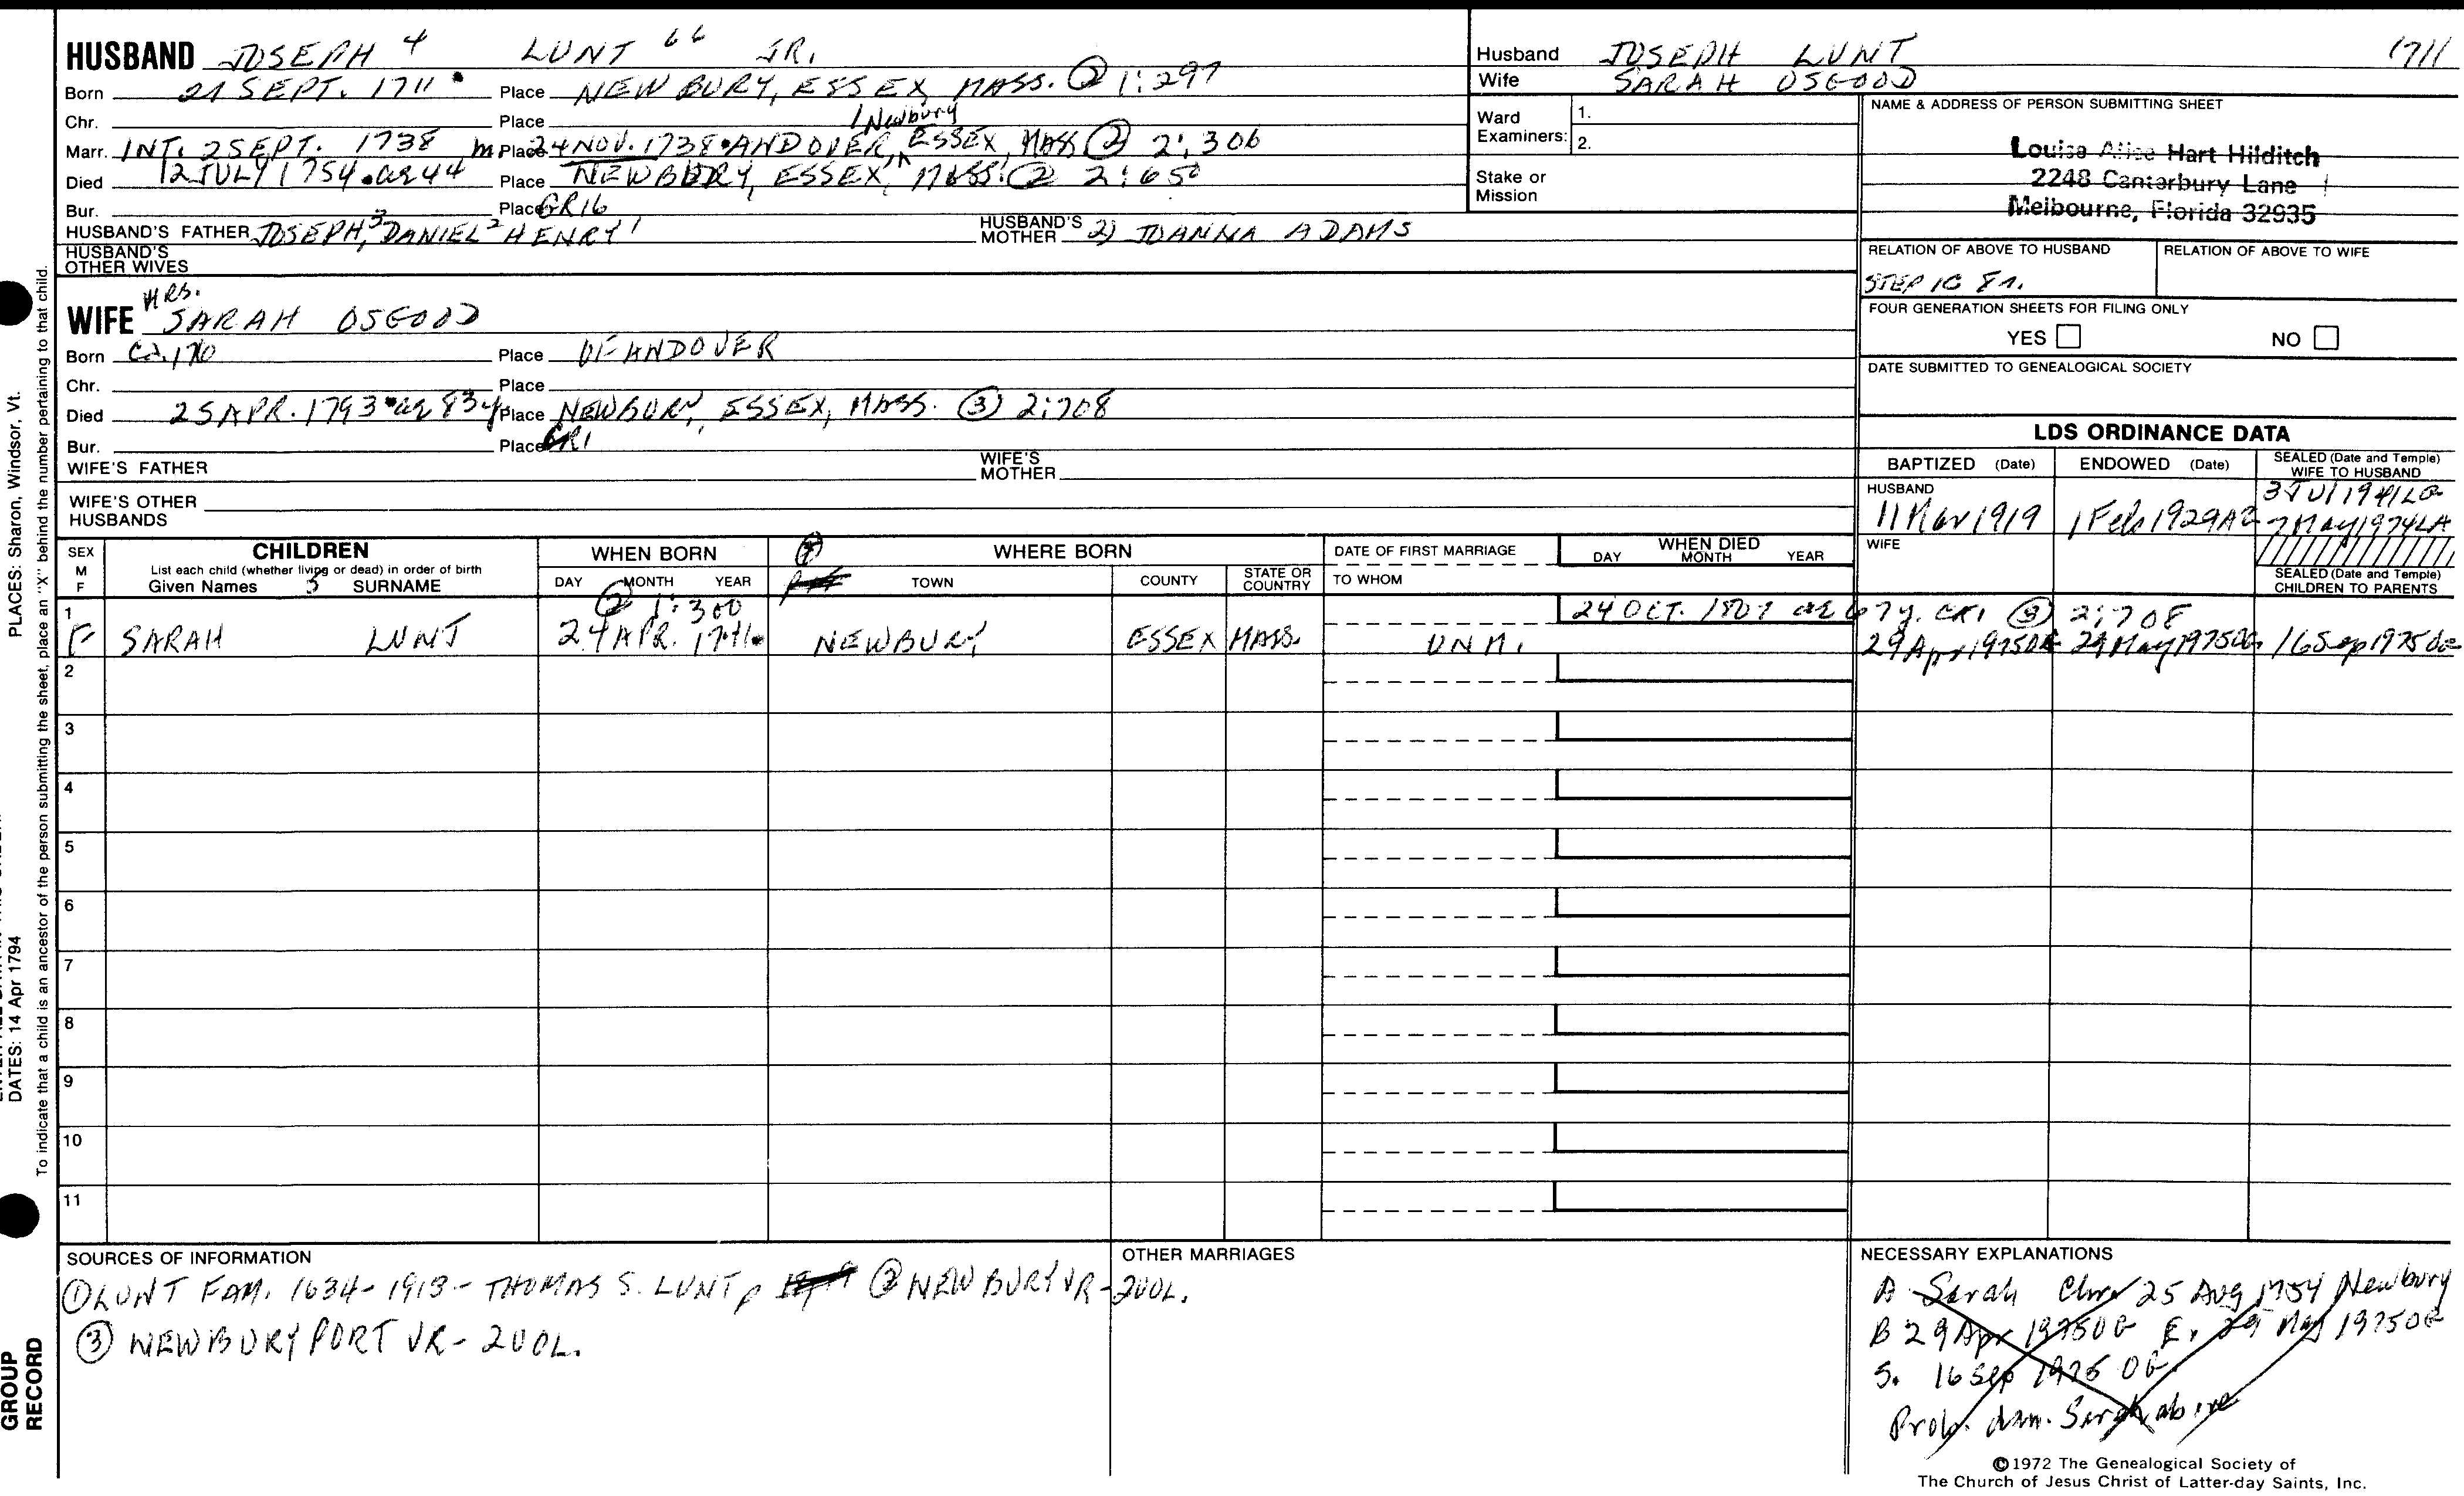 HUSBAND JOSEPH 4 LUNT 66 JR.
Born 21 SEPT. 1711 Place NEWBURY, ESSEX, MASS. ② 1:297
Chr. Place
/Newbury
Marr. INT. 2 SEPT. 1738 m Place 24 NOV. 1738 ANDOVER, ESSEX, MASS ② 2:306
Died 12 JULY 1754 ae 44 Place NEWBURY, ESSEX, MASS. ② 2:650
Bur. Place GR16
HUSBAND'S FATHER JOSEPH,3 DANIEL2 HENRY1 HUSBAND'S MOTHER 2) JOANNA ADAMS
HUSBAND'S
OTHER WIVES
MRS.
WIFE SARAH OSGOOD
Born Ca. 1710 Place OF ANDOVER
Chr. Place
Died 25 APR. 1793 ae 83 y Place NEWBURY, ESSEX, MASS. ③ 2:708
Bur. Place GR1
WIFE'S FATHER WIFE'S MOTHER
WIFE'S OTHER
HUSBANDS
Husband JOSEPH LUNT 1711
Wife SARAH OSGOOD
Ward
Examiners:
1.
2.
Stake or
Mission
NAME & ADDRESS OF PERSON SUBMITTING SHEET
Louise Alice Hart Hilditch
2248 Canterbury Lane
Melbourne, Florida 32935
RELATION OF ABOVE TO HUSBAND RELATION OF ABOVE TO WIFE
STEP 1C
FOUR GENERATION SHEETS FOR FILING ONLY
YES NO
DATE SUBMITTED TO GENEALOGICAL SOCIETY
LDS ORDINANCE DATA
BAPTIZED (Date) ENDOWED (Date) SEALED (Date and Temple) WIFE TO HUSBAND
HUSBAND
11 Mar 1919 1 Feb 1929 AZ 3 Jul 1941 LG
7 May 1974 LA
WIFE
SEALED (Date and Temple)
CHILDREN TO PARENTS
SEX
M
F
CHILDREN
List each child (whether living or dead) in order of birth
Given Names 5 SURNAME
WHEN BORN
DAY MONTH YEAR
WHERE BORN
TOWN COUNTY STATE OR COUNTRY
DATE OF FIRST MARRIAGE
TO WHOM
WHEN DIED
DAY MONTH YEAR
1 ② 1:300 24 OCT. 1807 ae 67 y. GR1 ③ 2:708
F SARAH LUNT 24 APR. 1741 NEWBURY ESSEX MASS. UNM. 29 Apr 1975 OG 29 May 1975 OG 16 Sep 1975 OG
2
3
4
5
6
7
8
9
10
11
SOURCES OF INFORMATION
① LUNT FAM. 1634-1913 - THOMAS S. LUNT, p ② NEWBURY VR - 2 VOL.
③ NEWBURYPORT VR - 2 VOL.
OTHER MARRIAGES
NECESSARY EXPLANATIONS
A Sarah Chr 25 Aug 1754 Newbury
B 29 Apr 1975 OG E. 29 May 1975 OG
S. 16 Sep 1975 OG
Prob. dau. Sarah above
©1972 The Genealogical Society of
The Church of Jesus Christ of Latter-day Saints, Inc.
PLACES: Sharon, Windsor, Vt.
DATES: 14 Apr 1794
To indicate that a child is an ancestor of the person submitting the sheet, place an "X" behind the number pertaining to that child.
GROUP
RECORD